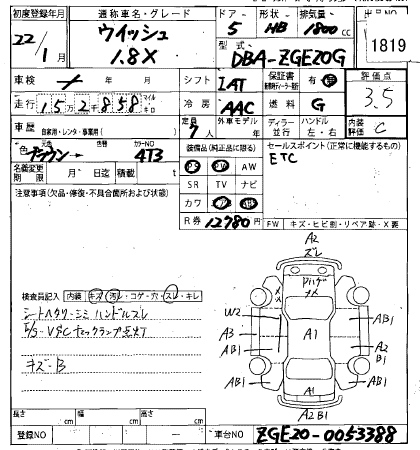 初度登録年月 通称車名・グレード ドア 形状 排気量 出品NO
22/1月 ウイッシュ 1.8X 5 HB 1800cc 1819
型式 DBA-ZGE20G
車検 年 月 シフト IAT 保証書 有 評価点 3.5
走行 152858 マイル キロ 冷房 AAC 燃料 G
車歴 自家用・レンタ・事業用( ) 定員 7人 外車モデル 年 ディーラー 並行 ハンドル 左・右 内装評価 C
色 ブラウン 元色 色替 カラーNO 4T3
装備品(純正品に限る) セールスポイント(正常に機能するもの)
名義変更期限 月 日迄 積載 t
PS PW AW ETC
SR TV ナビ
カワ
R券 12780円
注意事項(欠品・修復・不具合箇所および状態)
FW キズ・ヒビ割・リペア跡・X要
検査員記入 内装 キズ・汚レ・コゲ・穴・スレ・キレ
シートヘタリ・シミ ハンドルスレ
E/S-VSCチェックランプ点灯
キズ-B
A2
スレ
ハゲ
W2
A3
AB1
AB1
A1
AB1
A2
B1
AB1
A1
A2 B1
長さ cm 幅 cm 高さ cm
登録NO 車台NO ZGE20-0053388